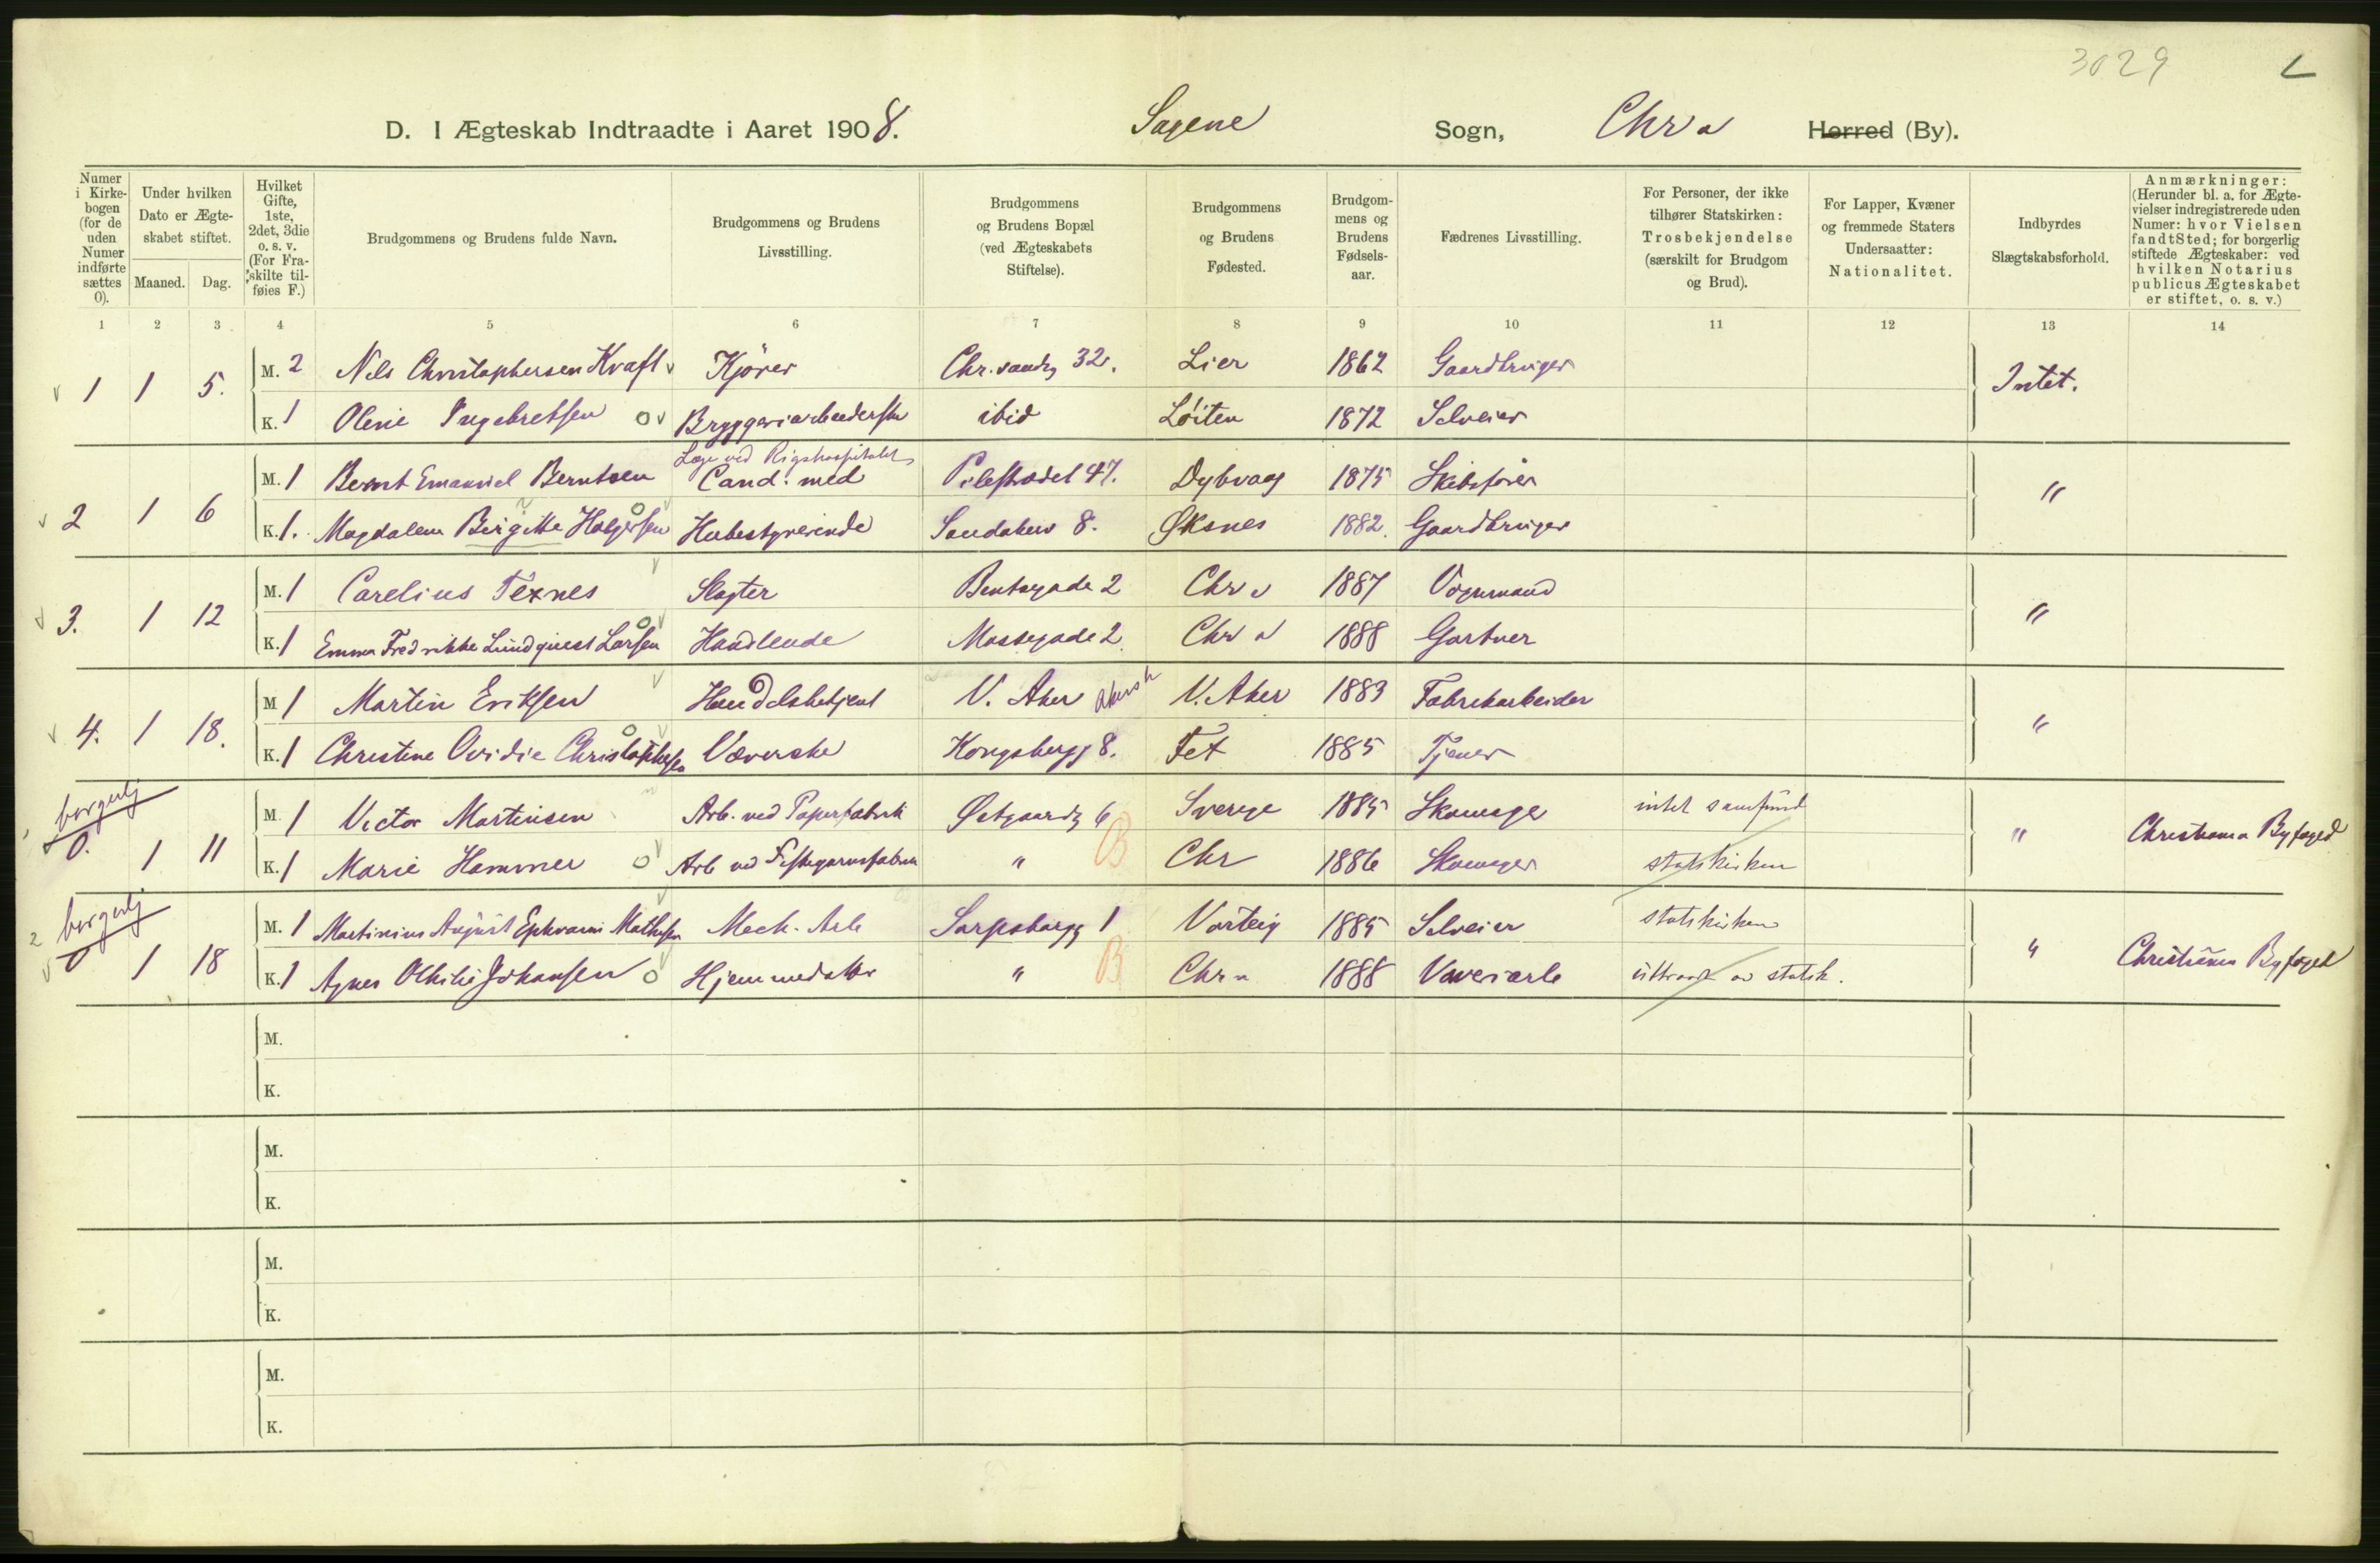 3029
D. I Ægteskab Indtraadte i Aaret 1908. Sagene Sogn, Chra Herred (By).
Numer i Kirkebogen (for de uden Numer indførte sættes 0).
Under hvilken Dato er Ægteskabet stiftet.
Maaned. Dag.
Hvilket Gifte, 1ste, 2det, 3die o. s. v. (For Fraskilte tilføies F.)
Brudgommens og Brudens fulde Navn.
Brudgommens og Brudens Livsstilling.
Brudgommens og Brudens Bopæl (ved Ægteskabets Stiftelse).
Brudgommens og Brudens Fødested.
Brudgommens og Brudens Fødselsaar.
Fædrenes Livsstilling.
For Personer, der ikke tilhører Statskirken: Trosbekjendelse (særskilt for Brudgom og Brud).
For Lapper, Kvæner og fremmede Staters Undersaatter: Nationalitet.
Indbyrdes Slægtskabsforhold.
Anmærkninger: (Herunder bl. a. for Ægtevielser indregistrerede uden Numer: hvor Vielsen fandt Sted; for borgerlig stiftede Ægteskaber: ved hvilken Notarius publicus Ægteskabet er stiftet, o. s. v.)
1 2 3 4 5 6 7 8 9 10 11 12 13 14
1 1 5. M. 2 Nils Christophersen Kraft Kjører Chr.sandsg 32. Lier 1862 Gaardbruger Intet.
K. 1 Olene Ingebretsen Bryggeriarbeiderske ibid Løiten 1872 Selveier
Læge ved Rigshospitalet
2 1 6 M. 1 Bernt Emanuel Berntsen Cand. med Pilestrædet 47. Dybvaag 1875 Skibsfører "
K. 1. Magdalena Birgitte Holgersen Husbestyrerinde Sandakerv 8. Øksnes 1882. Gaardbruger
3. 1 12 M. 1 Carelius Texnes Slagter Bentsegade 2 Chra 1887 Vognmand "
K. 1 Emma Fredrikke Lundquest Larsen Handlende Mossegade 2. Chra 1888 Gartner
4. 1 18. M 1 Martin Eriksen Handelsbetjent V. Aker Akersh V. Aker 1883 Fabrikarbeider "
K. 1 Christine Ovidie Christophersen Væverske Kongsbergg 8. Fet 1885 Tjener
borgerlj
0. 1 11 M. 1 Victor Martinsen Arb. ved Papirfabrik Østgaardsg 6 Sverige 1885 Skomager intet samfund " Christiania Byfoged
K. 1 Marie Hammer Arb ved Fiskegarnsfabrik " B Chr 1886 Skomager statskirken
borgerlj
0 1 18 M. 1 Martinius August Ephraim Mathisen Mech. Arb Sarpsborgg 1 Varteig 1885 Selveier statskirken " Christiania Byfoged
K. 1 Agnes Othilie Johansen Hjemmedatter " B Chra 1888 Væveriarb uttraadt av statsk.
M.
K.
M.
K.
M.
K.
M.
K.